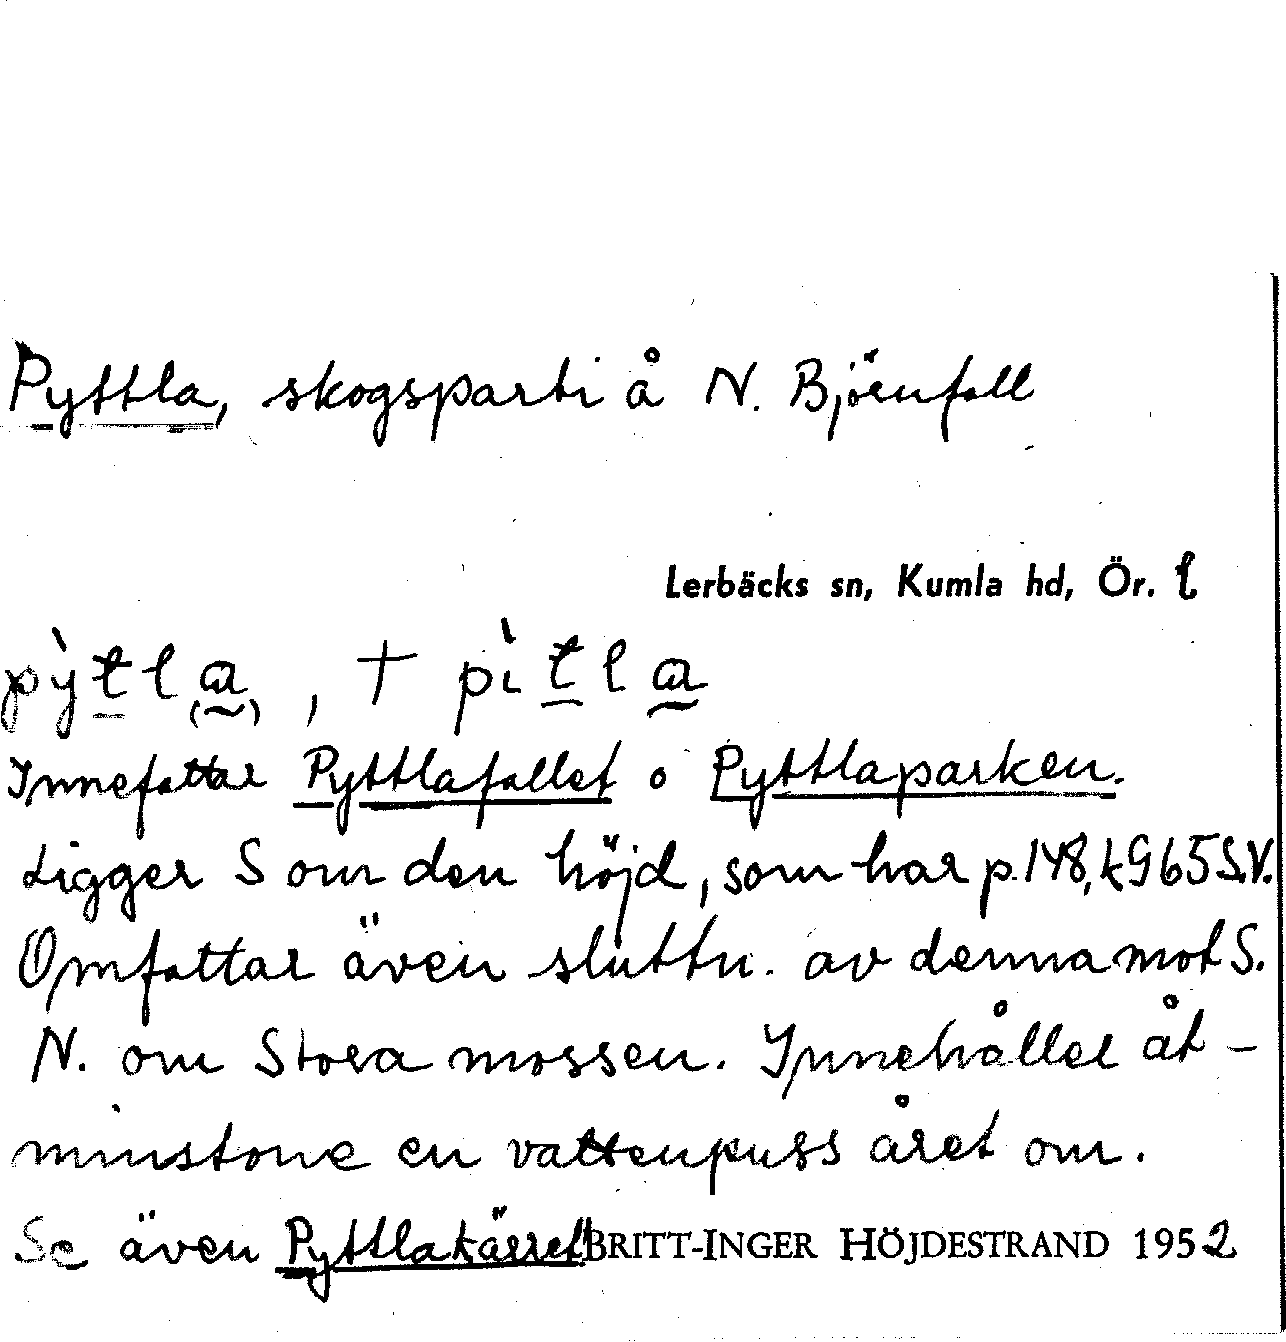 Pyttla, skogsparti å N. Björnfall
Lerbäcks sn, Kumla hd, Ör. l
pỳtla, † pìtla
Innefattar Pyttlafallet o Pyttlaparken.
Ligger S om den höjd, som har p. 148, k 965 S.V.
Omfattar även sluttn. av denna mot S.
N. om Stora mossen. Innehåller åt-
minstone en vattenpuss året om.
Se även Pyttlakärret BRITT-INGER HÖJDESTRAND 1952